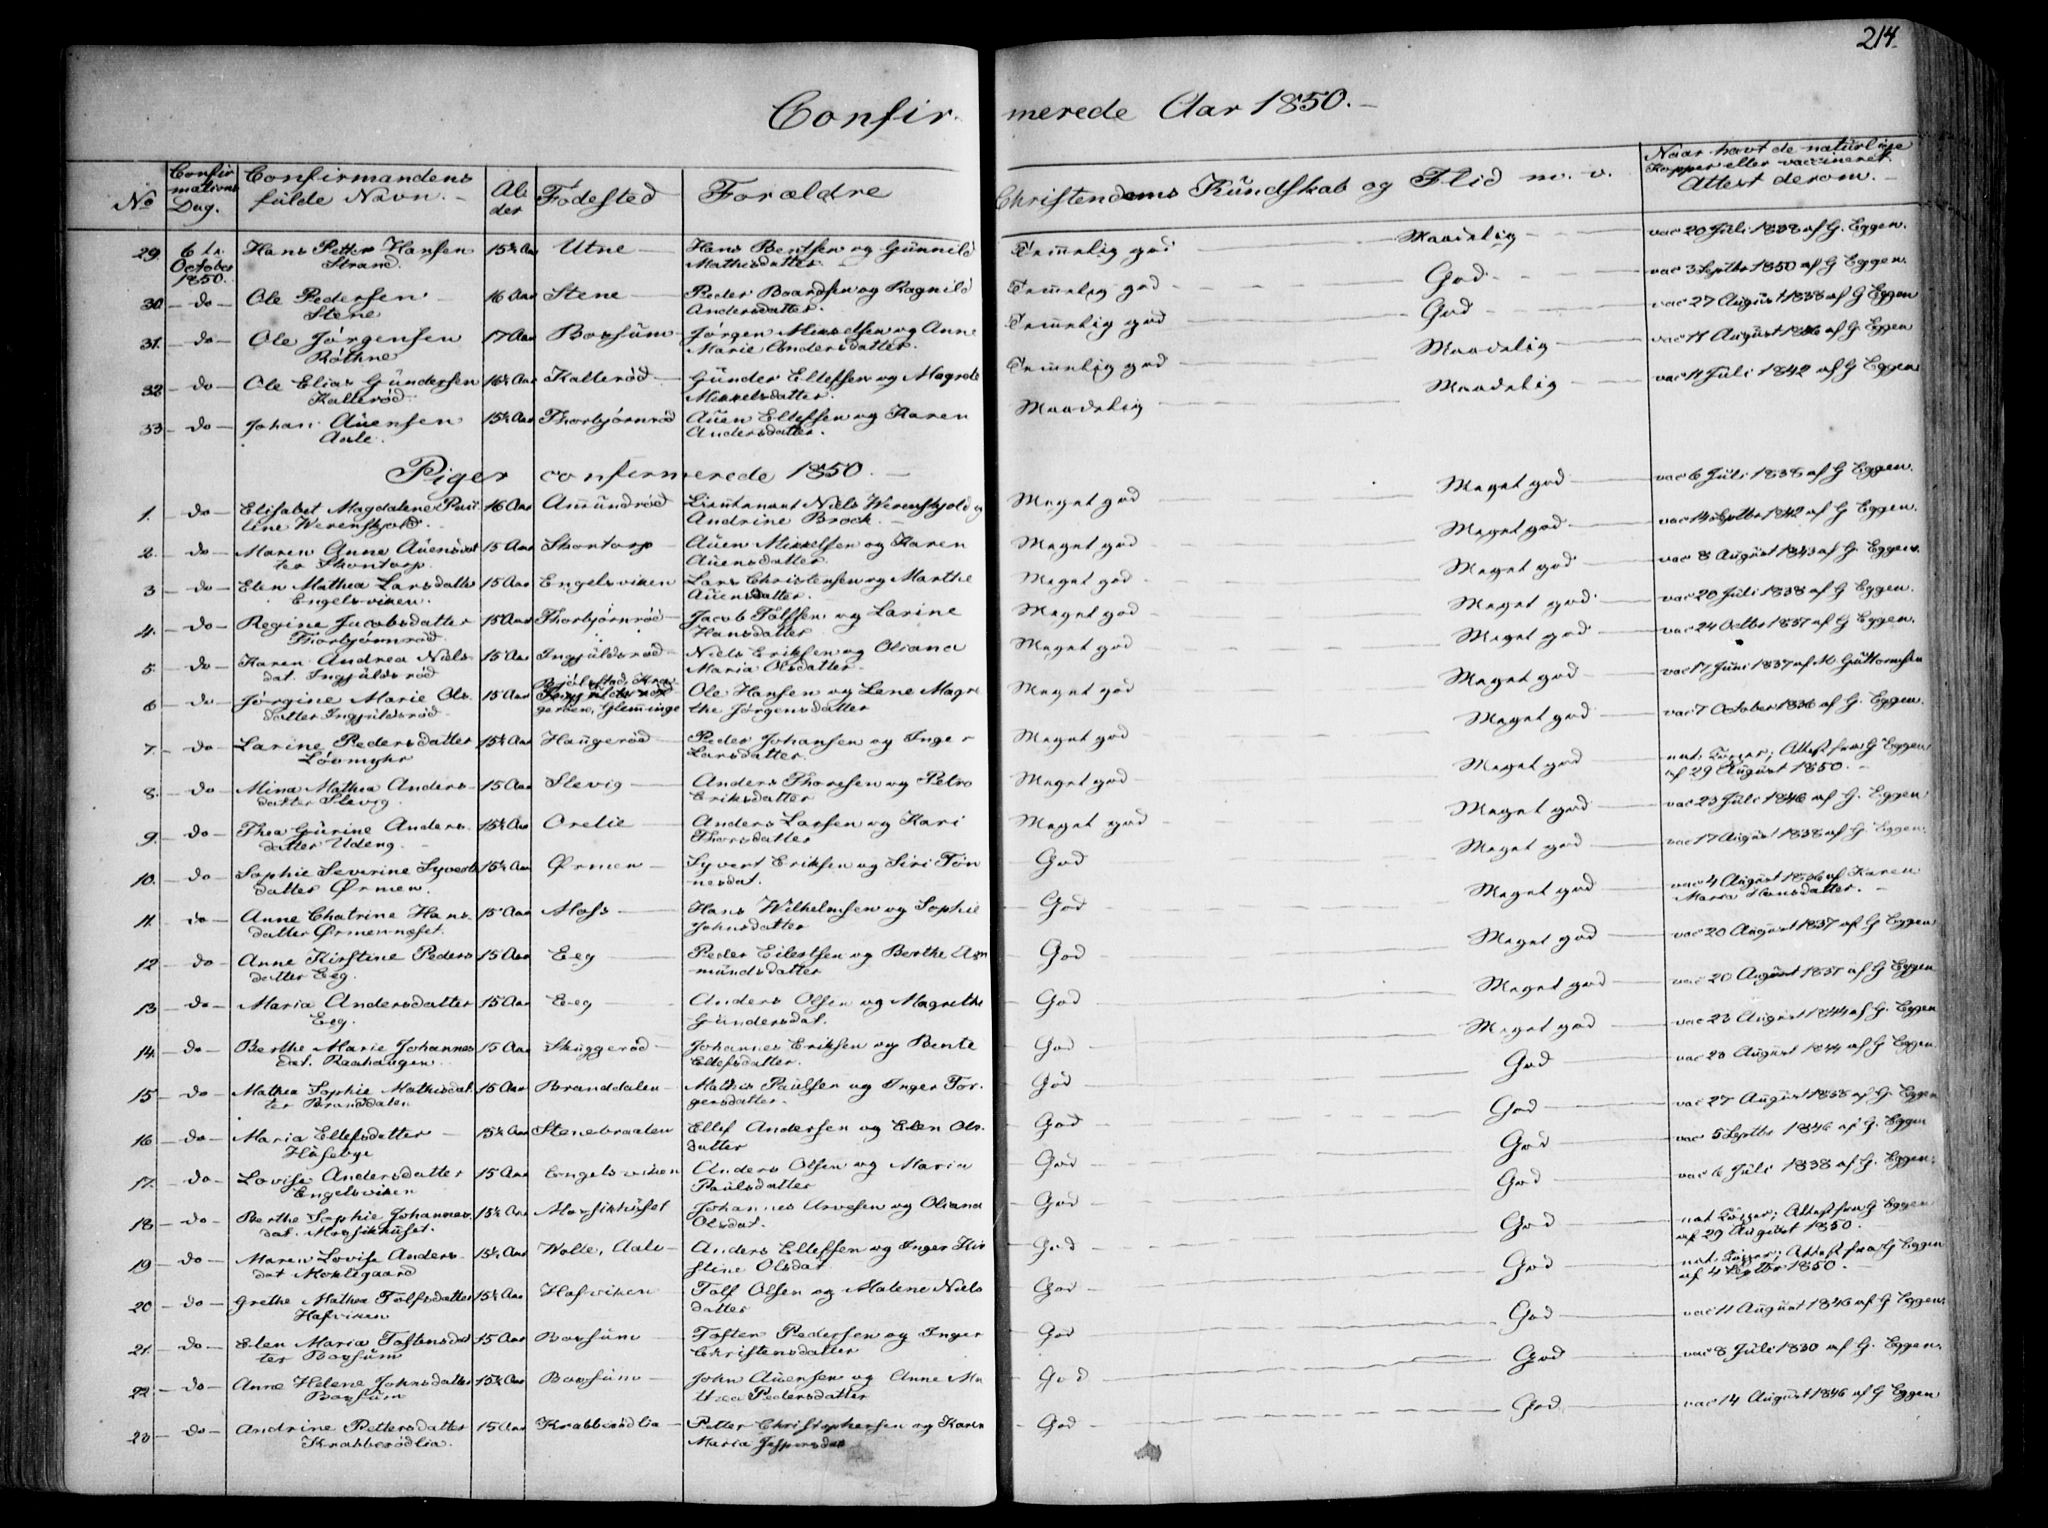 214.
Confir- merede Aar 1850.-
No
Confirmations Dag.
Confirmandens fulde Navn.-
Alder
Fødested
Forældre
Christendoms Kundskab og Flid m. v.
Naar havt de naturlige Kopper eller vaccineret. Attest derom.-
29. 6te October 1850. Hans Petter Hansen Strand. 15½ Aar Utne Hans Bentsen og Gunnild Mathisdatter. Temmelig god Maadelig vac 20 Juli 1838 af G. Eggen.
30. do Ole Pedersen Stene 16 Aar Stene Peder Baardsen og Ragnild Andersdatter. Temmelig god God vac 3 Septbr 1850 af G Eggen.
31. do Ole Jørgensen Røthne 17 Aar Bossum Jørgen Mikkelsen og Anne Marie Andersdatter. Temmelig god God vac 27 August 1838 af G Eggen
32 do Ole Elias Gundersen Kallerød 16½ Aar Kallerød Gunder Ellefsen og Magrete Mikkelsdatter. Temmelig god Maadelig vac 11 August 1846 af G. Eggen
33 do Johan Auensen Aale. 15½ Aar Thorbjørnrød Auen Ellefsen og Karen Andersdatter. Maadelig Maadelig vac 11 Juli 1842 af G Eggen
Piger confirmerede 1850.
1. do Elisabet Magdalene Pauline Werenskjold. 16 Aar Amundrød Lieutenant Niels Werenskjold og Andrine Brock. Meget god Meget god vac 6 Juli 1838 af G Eggen.
2. do Maren Anne Auensdatter Skontorp. 15 Aar Skontorp Auen Mikkelsen og Karen Auensdatter. Meget god Meget god vac 14 Septbr 1842 af G Eggen.
3 do Elen Mathea Larsdatter Engelsviken. 15 Aar Engelsviken Lars Christensen og Marthe Auensdatter. Meget god Meget god vac 8 August 1843 af G. Eggen.
4. do Regine Jacobsdatter Thorbjørnrød. 15 Aar Thorbjørnrød Jacob Tolfsen og Larine Hansdatter Meget god Meget god vac 20 Juli 1838 af G. Eggen.
5. do Karen Andrea Nielsdat. Ingjuldsrød 15 Aar Ingjuldsrød Niels Eriksen og Oliana Maria Olsdatter Meget god Meget god vac 24 Octbr 1837 af G. Eggen.
6 do Jørgine Marie Olsdatter Ingjuldsrød 15 Aar Ingjuldsrød Glemminge Ole Hansen og Lene Magrethe Jørgensdatter Meget god Meget god vac 17 Juni 1837 af M. Guttormsen
7. do Larine Pedersdatter Løvmyhr 15½ Aar Haugerød Peder Johansen og Inger Larsdatter. Meget god Meget god vac 7 October 1836 af G. Eggen.
8. do Mina Mathea Andersdatter Slevig. 15 Aar Slevig Anders Thoresen og Petro Eriksdatter Meget god Meget god nat. Kopper; Attest fra G Eggen af 29 August 1850.
9. do Thea Gurine Andersdatter Udeng. 15½ Aar Orelie Anders Larsen og Kari Thorsdatter Meget god Meget god vac 23 Juli 1846 af G. Eggen
10. do Sophie Severine Syvertsdatter Ørmen. 15½ Aar Ørmen Syvert Eriksen og Siri Tønnesdat. God Meget god vac 17 August 1838 af G. Eggen.
11. do Anne Chatrine Hansdatter Ørmennæset. 15 Aar Moss Hans Wilhelmsen og Sophie Johnsdatter God Meget god vac 4 August 1836 af Karen Maria Hansdatter.
12 do Anne Kirstine Pedersdatter Eeg. 15 Aar Eeg Peder Eilertsen og Berthe Asmundsdatter God Meget god vac 20 August 1837 af G. Eggen
13 do Maria Andersdatter Eeg. 15 Aar Eeg Anders Olsen og Magrethe Gundersdat. God Meget god vac 20 August 1837 af G Eggen
14. do Berthe Marie Johannesdat. Raahaugen. 15 Aar Skuggerød Johannes Eriksen og Bente Ellefsdatter. God Meget god vac 23 August 1844 af G. Eggen
15 do Mathea Sophie Mathisdatter Branddalen 15 Aar Branddalen Mathis Paulsen og Inger Torgersdatter. God God vac 23 August 1844 af G Eggen.
16 do Maria Ellefsdatter Husebye 15½ Aar Stenebraaten Ellef Andersen og Elen Olsdatter God God vac 27 August 1838 af G. Eggen
17. do Lovise Andersdatter Engelsviken 15 Aar Engelsviken Anders Olsen og Maria Paulsdatter God God vac 5 Septbr 1846 af G. Eggen
18 do Berthe Sophie Johannesdat. Mossikhuset. 15½ Aar Mossikhuset Johannes Arvesen og Oliana Olsdat. God God vac 6 Juli 1838 af G. Eggen.
19 do Maren Lovise Andersdat Moklegaard 15½ Aar Wolte, Aale Anders Ellefsen og Inger Kirstine Olsdat God God nat Kopper; Attest fra G Eggen af 29 August 1850.
20 do Grethe Mathea Tolfsdatter Hafviken 15½ Aar Hafviken Tolf Olsen og Malene Nielsdatter God God nat. Kopper; Attest fra G Eggen af 4 Septbr 1850.
21. do Elen Maria Toftensdatter Bossum 15 Aar Bossum Tosten Pedersen og Inger Christensdatter God God vac 11 August 1846 af G Eggen.
22 do Anne Helene Johnsdatter Bossum 15½ Aar Bossum John Auensen og Anne Mathea Pedersdatter God God vac 8 Juli 1830 af G. Eggen.
23 do Andrine Pettersdatter Krabberødlia. 15 Aar Krabberødlia Petter Christophersen og Karen Maria Jespersdat God God vac 14 August 1846 af G Eggen